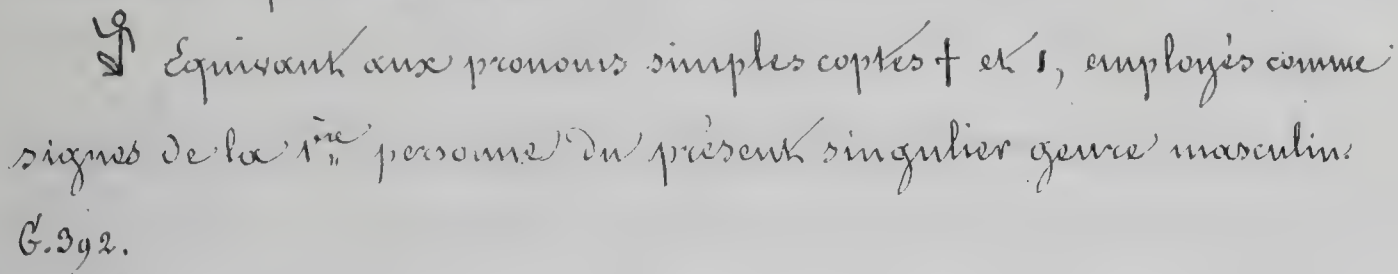 𓀀 Equivant aux pronoms simples coptes ϯ et ⲓ, employés comme
signes de la 1ère personne du présent singulier genre masculin.
G. 392.